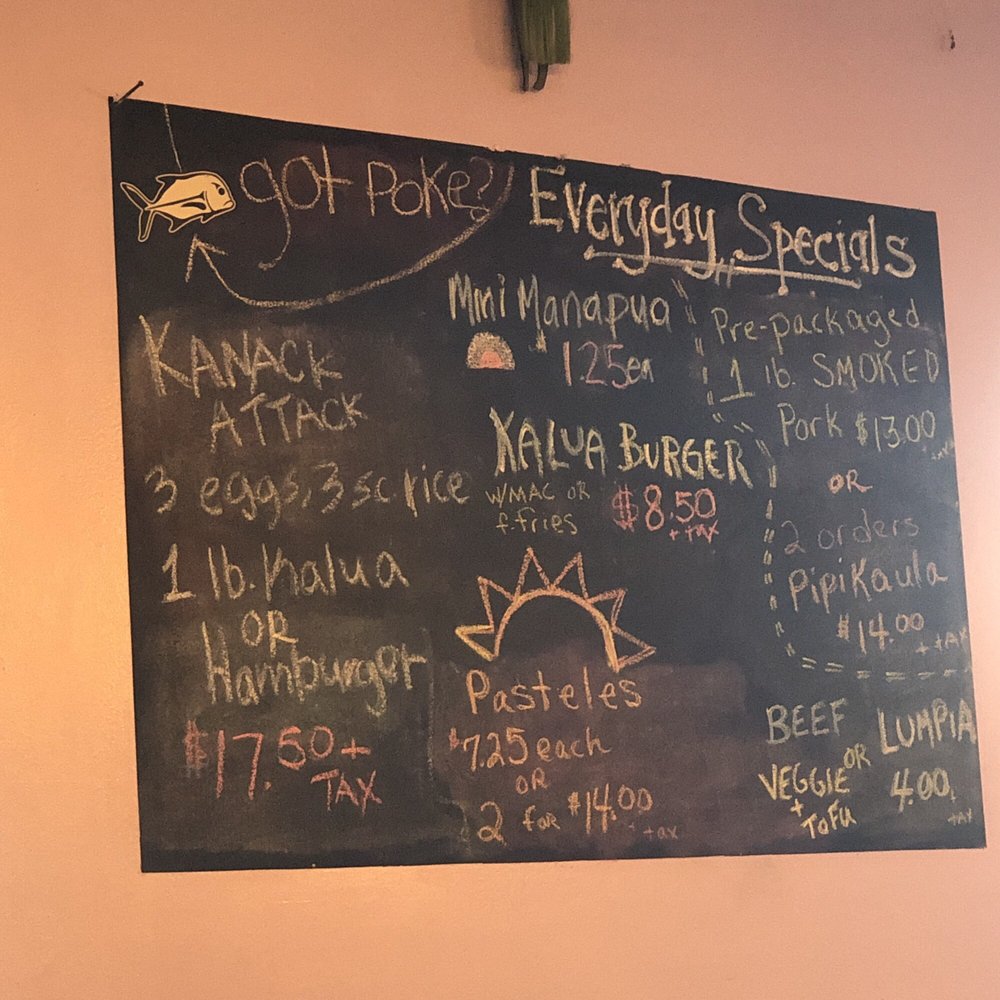 got Poke?
Everyday Specials
KANACK
ATTACK
3 eggs, 3 sc. rice
1 lb. Kalua
OR
Hamburger
$17.50 +
TAX
Mini Manapua
1.25 ea
KALUA BURGER
W/MAC OR
f. fries
$8.50
+ TAX
Pasteles
$7.25 each
OR
2 for $14.00
+ tax
Pre-packaged
1 lb. SMOKED
Pork $13.00
+ tax
OR
2 orders
PipiKaula
$14.00
+ tax
BEEF LUMPIA
OR
VEGGIE 4.00
+
ToFu
+ tax